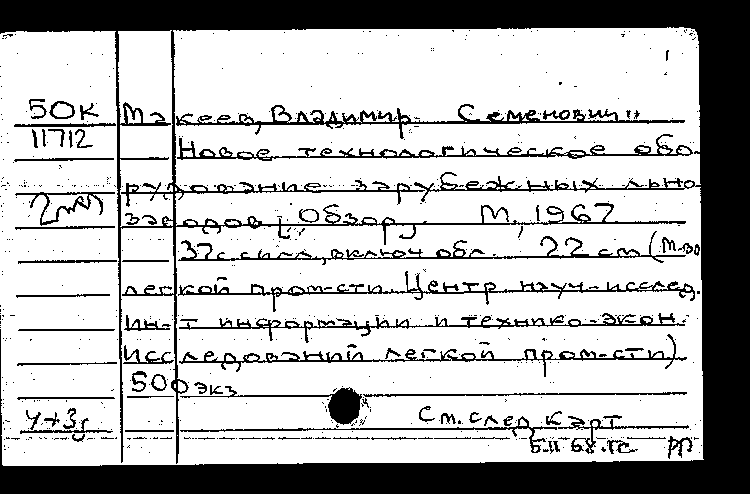 50К Макеев, Владимир Семенович
11712 Новое технологическое обо-
рудование зарубежных льно-
заводов [Обзор] М., 1967
37с с илл., включ обл. 22 см (М-во
легкой пром-сти Центр науч-исслед.
ин-т информации и технико-экон.
исследований легкой пром-сти)
500 экз
См. след карт
5.II 68.